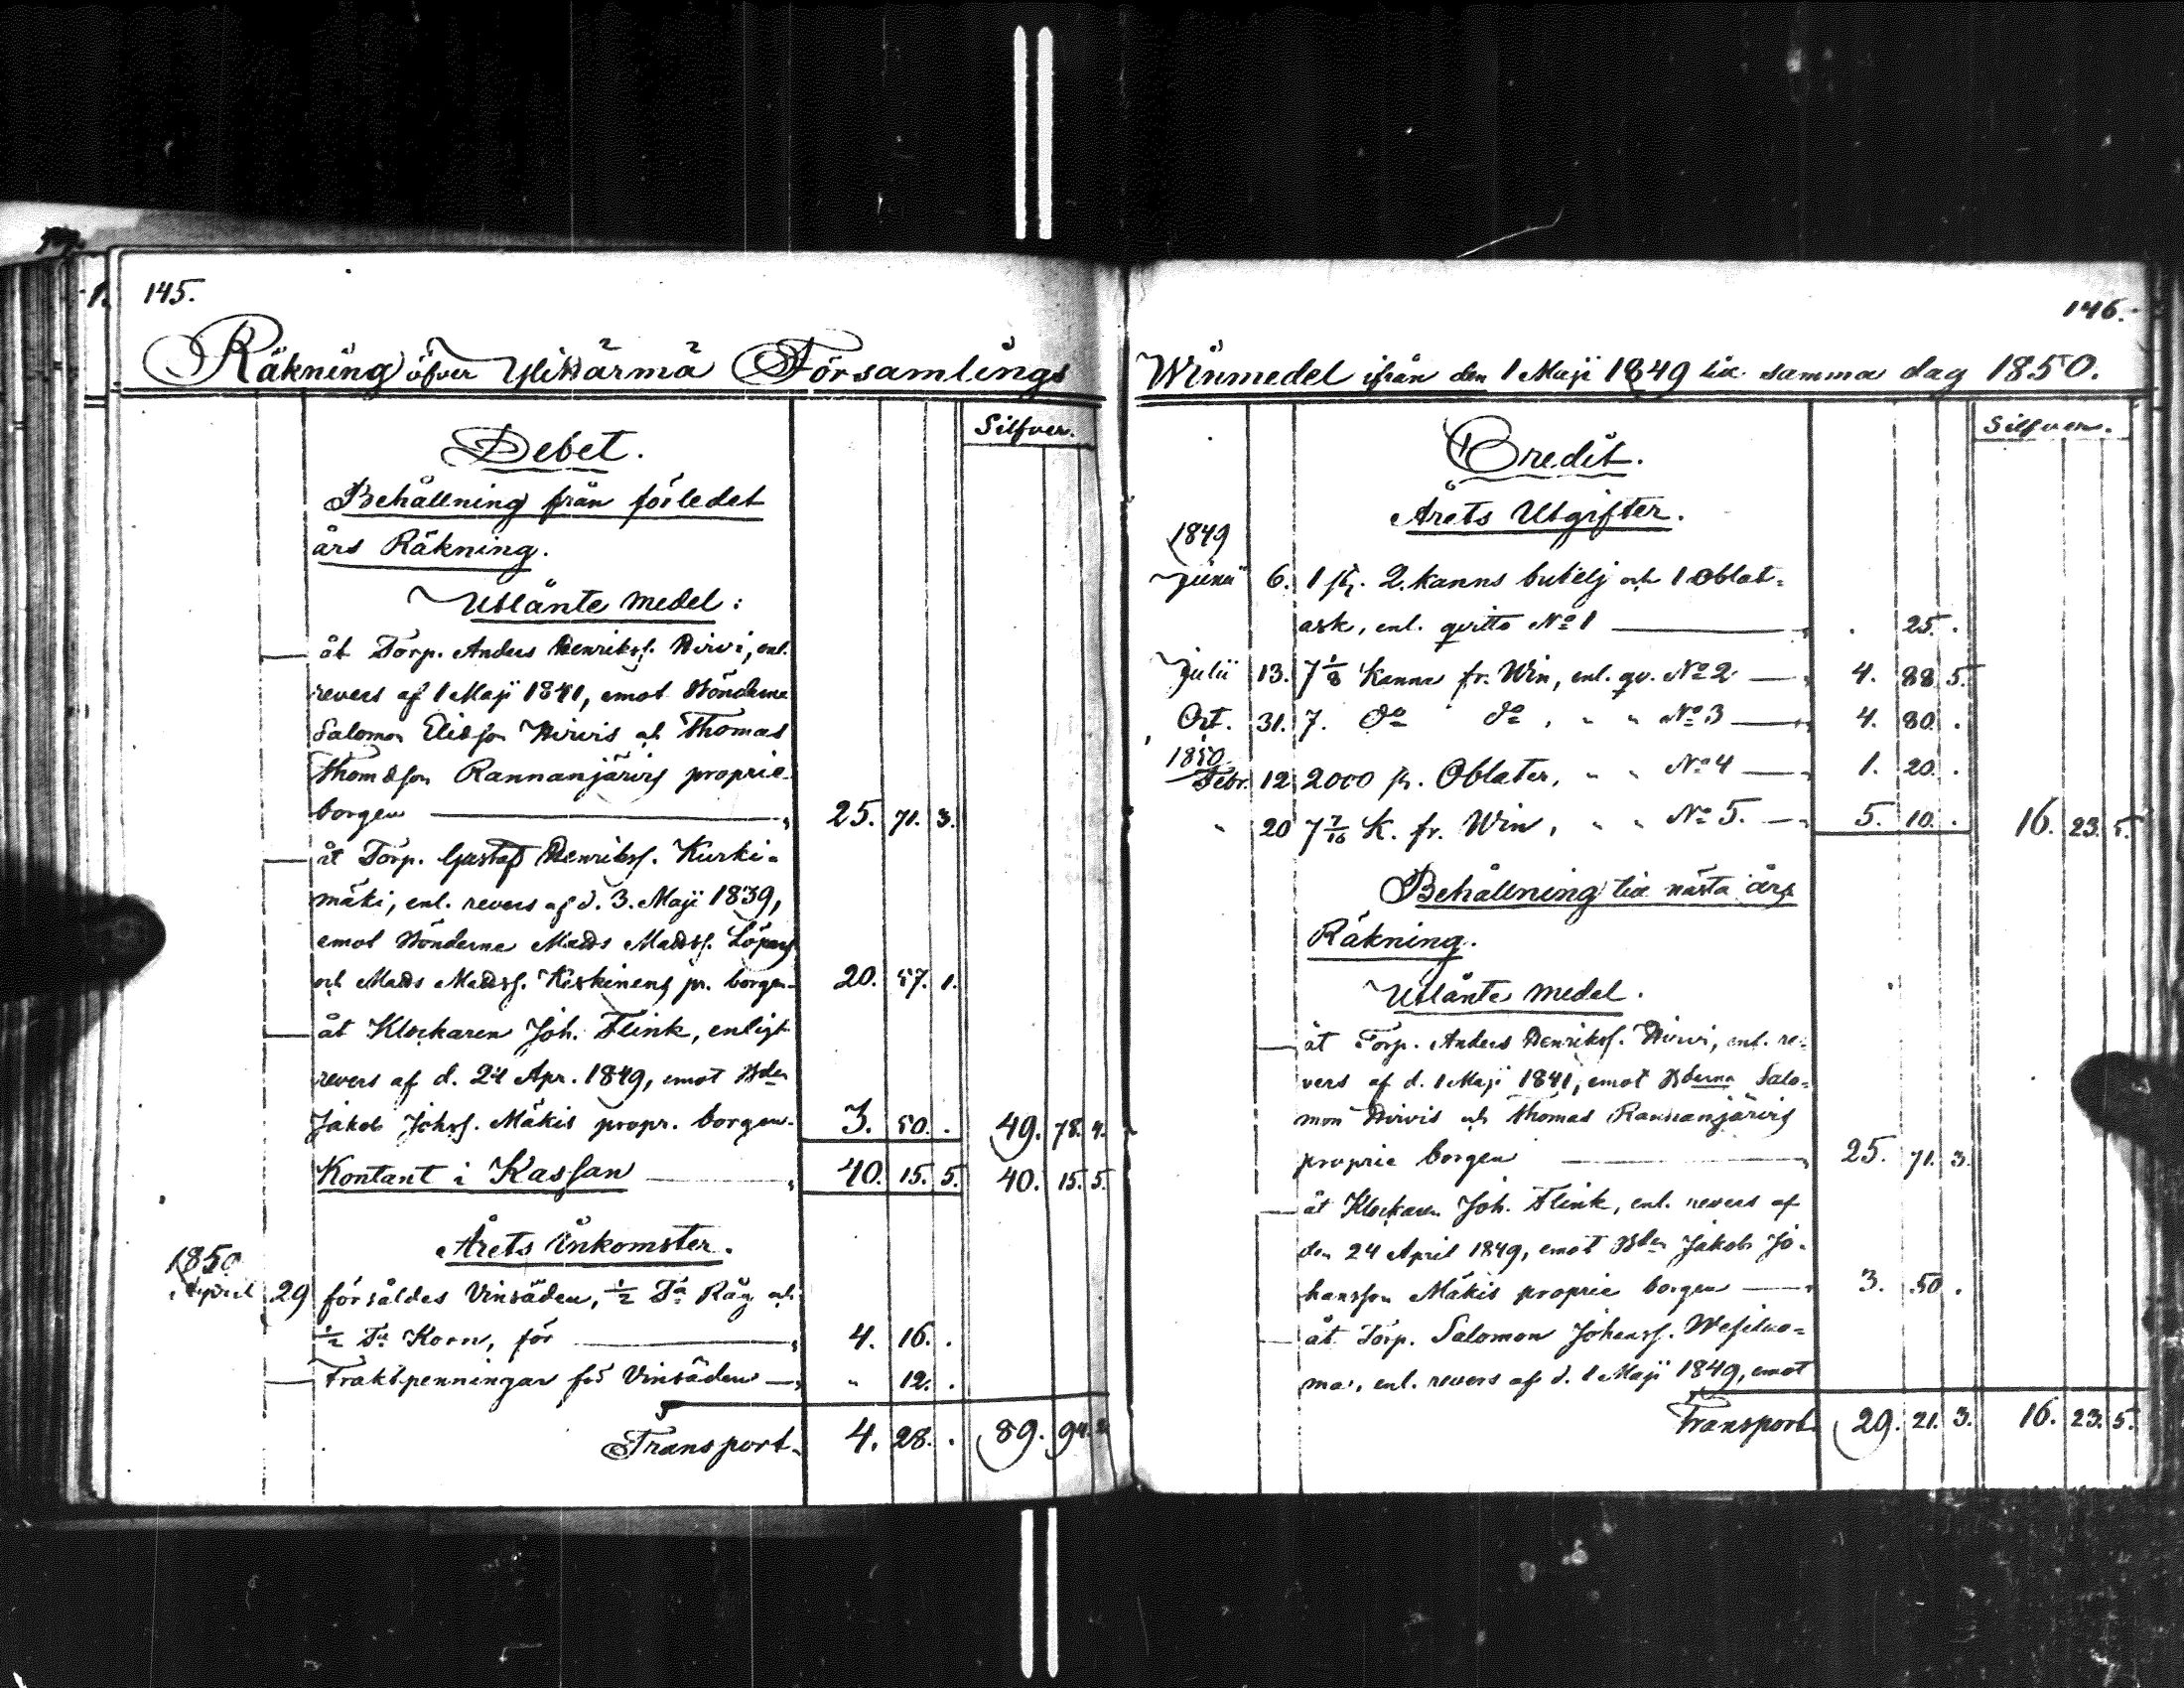 145.
Räkning öfver Ylihärmä Församlings
Silfver.
Debet.
Behållning från förledet
års Räkning.
Utlånte medel:
åt Torp. Anders Henrikss. Hirvi, enl.
revers af 1 Maji 1841, emot Bönderne
Salomon Eliasson Hirvis och Thomas
Thomasson Rannanjärvis proprie
borgen 25. 71. 3.
åt Torp. Gustaf Henrikss. Kurki-
mäki, enl. revers af d. 3. Maji 1839,
emot Bönderne Matts Mattss.
och Matts Mattss. Keskinens pr. borgen 20. 57. 1.
åt Klockaren Joh. Flink, enligt
revers af d. 24 Apr. 1849, emot Bden
Jakob Johss. Mäkis propr. borgen 3. 50. . 49. 78. 4.
Kontant i Kassan 40. 15. 5. 40. 15. 5.
Årets Inkomster.
1850
April 29 försåldes Vinsäden, ½ Ta Råg och
½ Ta Korn, för 4. 16. .
Fraktpenningar för Vinsäden " 12. .
Transport 4. 28. . 89. 94.
146.
Winmedel ifrån den 1 Maji 1849 till samma dag 1850.
Silfver.
Credit.
Årets Utgifter.
1849
Junii 6. 1 st. 2. kanns butelj och 1 Oblat=
ask, enl. qvitto No 1 . 25. .
Julii 13. 7 1/8 Kanna fr. Win, enl. qv. No 2 4. 88. 5.
Oct. 31. 7. do do, " " No 3 4. 80. .
1850
Febr. 12 2000 st. Oblater, " " No 4 1. 20. .
" 20 7 7/16 K. fr. Win, " " No 5. 5. 10. . 16. 23. 5.
Behållning till nästa års
Räkning.
Utlånte medel.
åt Torp. Anders Henrikss. Hirvi, enl. re=
vers af d. 1 Maji 1841, emot Bderna Salo=
mon Hirvis och Thomas Rannanjärvis
proprie borgen 25. 71. 3.
åt Klockaren Joh. Flink, enl. revers af
den 24 April 1849, emot Bden Jakob Jo=
hansson Mäkis proprie borgen 3. 50 .
åt Torp. Salomon Johanss.
ma, enl. revers af d. 1 Maji 1849, emot
Transport 29. 21. 3. 16. 23. 5.